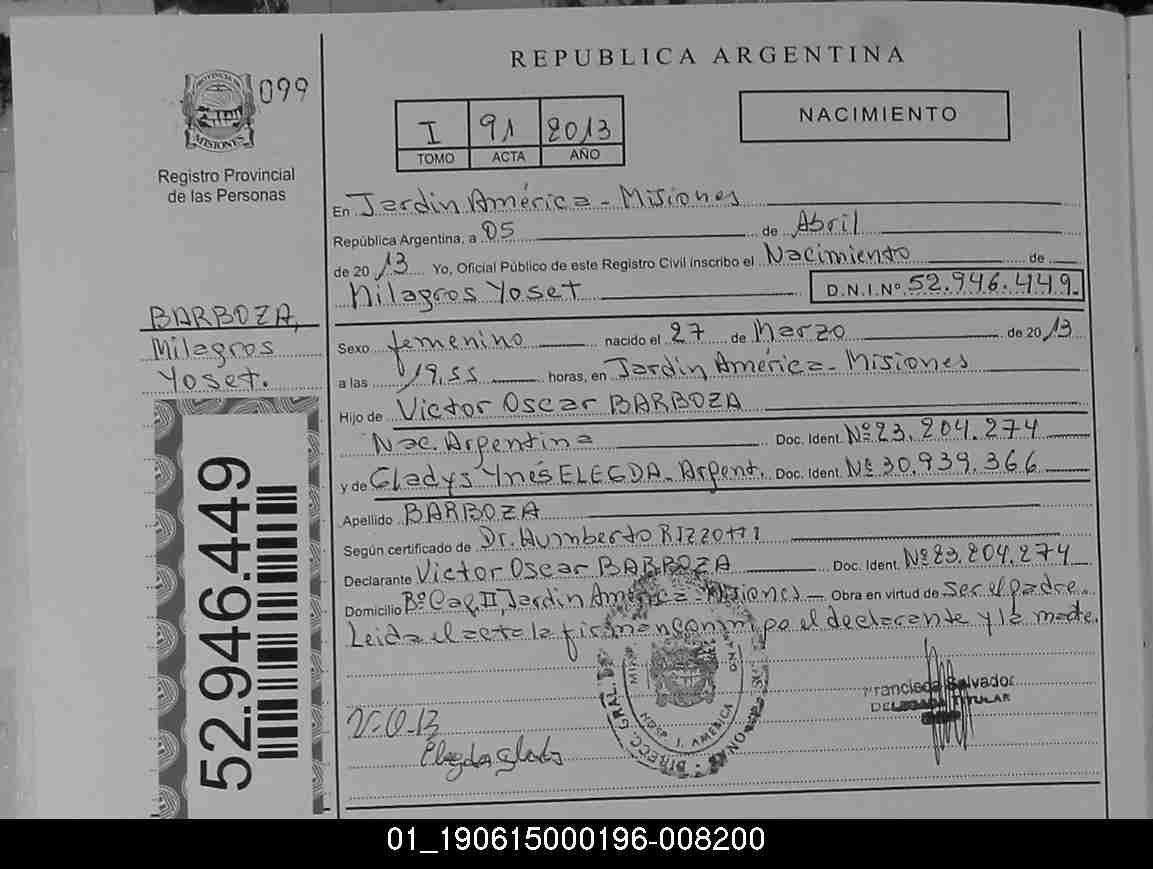 REPUBLICA ARGENTINA
PROVINCIA DE
MISIONES
099
Registro Provincial
de las Personas
I 91 2013
TOMO ACTA AÑO
NACIMIENTO
En Jardin América - Misiones
República Argentina, a 05 de Abril
de 2013 Yo, Oficial Público de este Registro Civil inscribo el Nacimiento de
Milagros Yoset D.N.I.Nº 52.946.449
BARBOZA,
Milagros
Yoset.
Sexo femenino nacido el 27 de Marzo de 2013
a las 19,55 horas, en Jardin, América - Misiones
Hijo de Victor Oscar BARBOZA
Nac. Argentina Doc. Ident. Nº 23.204.274
y de Gladys Ynés ELEGDA - Argent. Doc. Ident. Nº 30.939.366
Apellido BARBOZA
Según certificado de Dr. Humberto RIZZOTTI
Declarante Victor Oscar BARBOZA Doc. Ident. Nº 23.204.274
Domicilio Bº II, Jardin América - Misiones - Obra en virtud de ser el padre.
Leida el acta la firman conmigo el declarante y la madre.
52.946.449
DIRECC. GRAL. DE
AMERICA
Francisca Salvador
DELEGADA TITULAR
Elegda Gladys
01_190615000196-008200